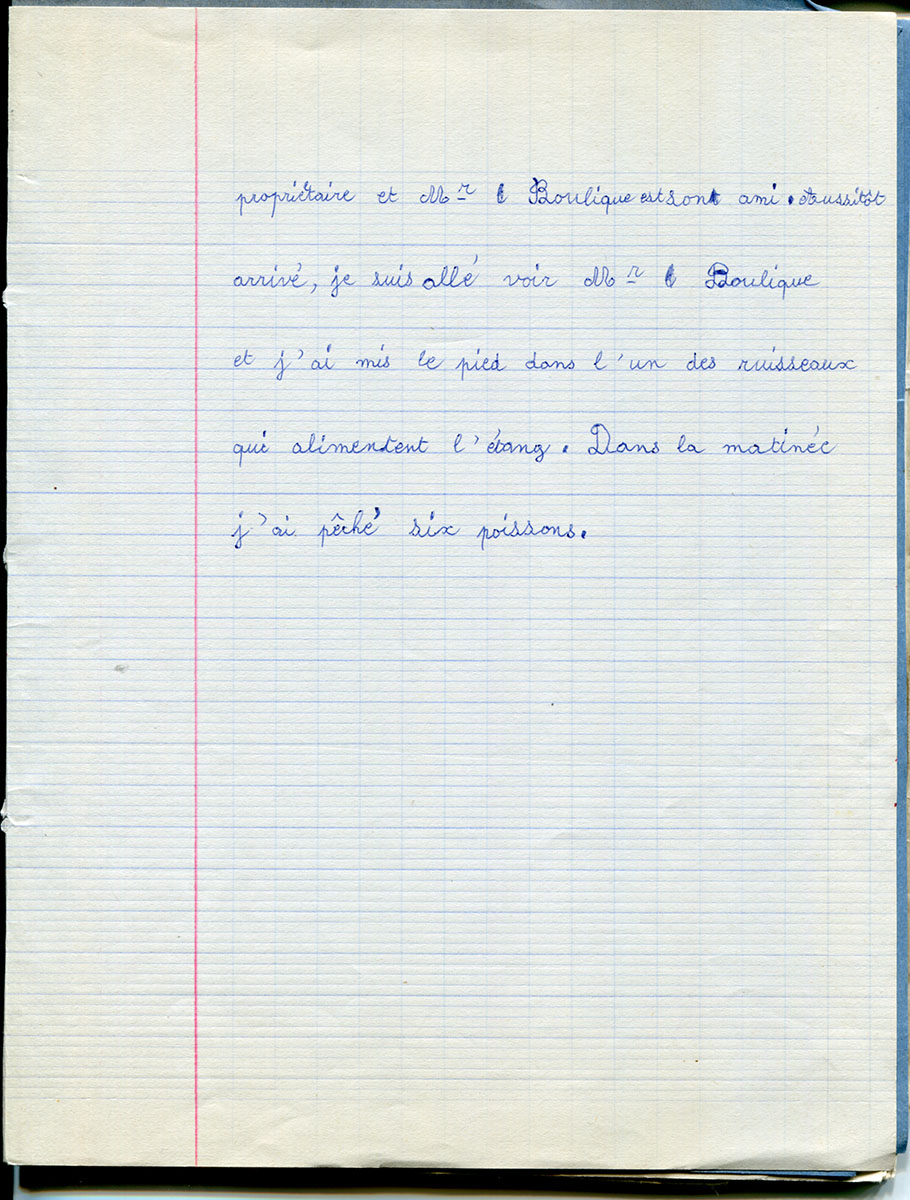 propriétaire et Mr Boulique est son ami. Aussitôt
arrivé, je suis allé voir Mr Boulique
et j'ai mis le pied dans l'un des ruisseaux
qui alimentent l'étang. Dans la matinée
j'ai pêché six poissons.